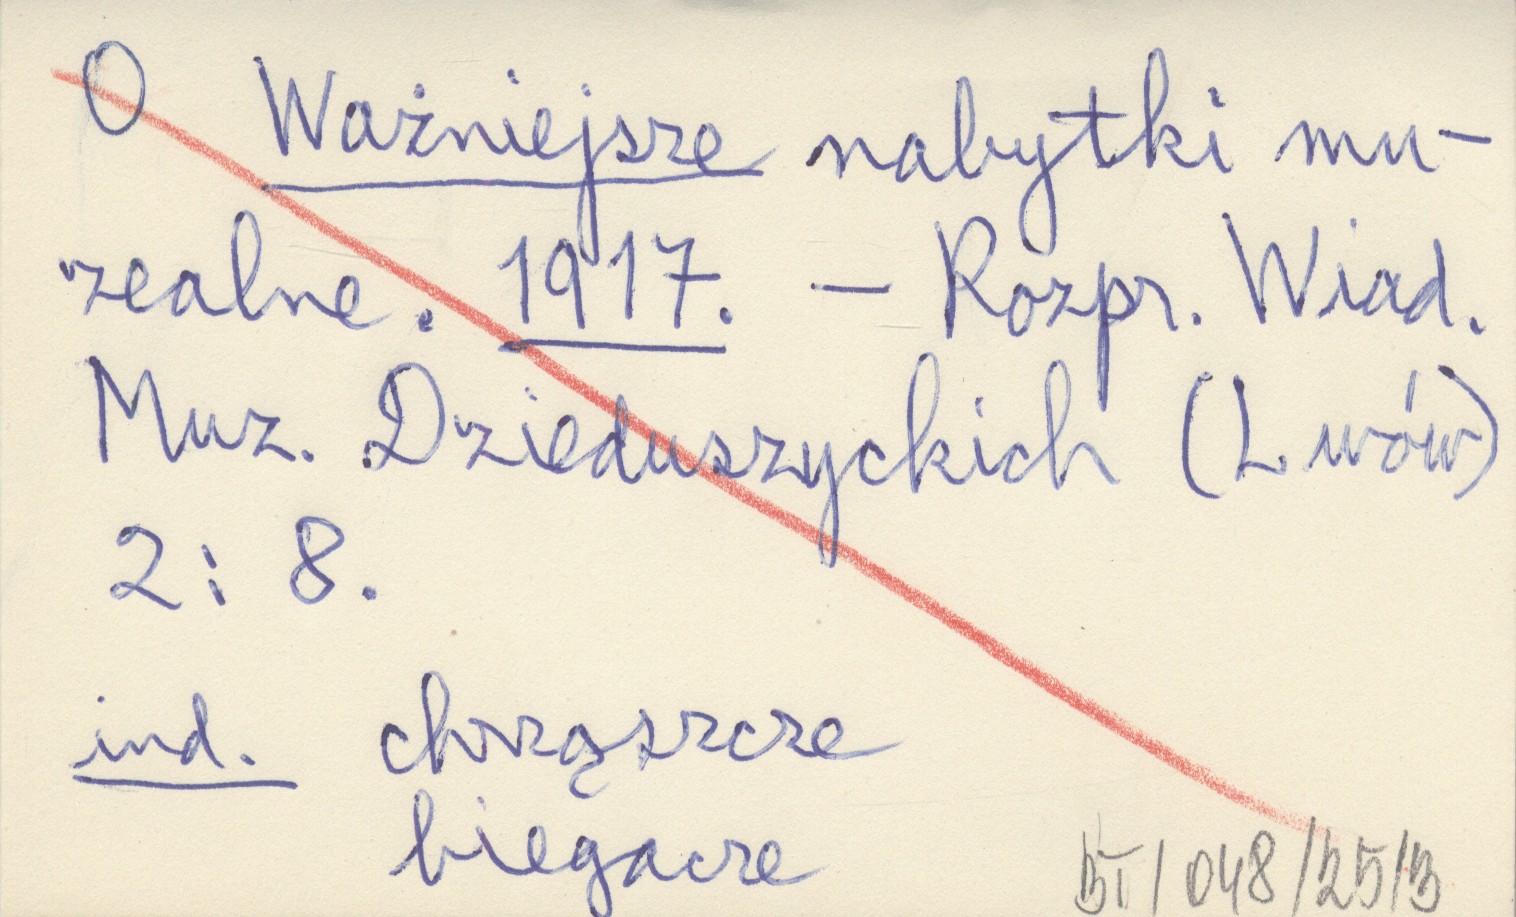 O Ważniejsze nabytki mu-
zealne. 1917. — Rozpr. Wiad.
Muz. Dzieduszyckich (Lwów)
2: 8.
ind. chrząszcze
biegacze
BI/048/25/3